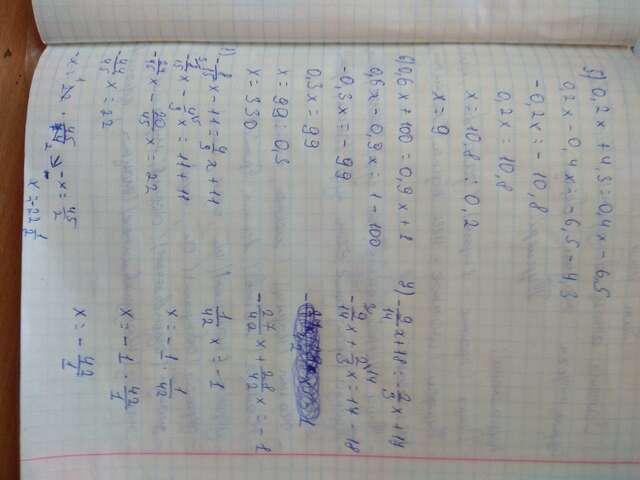 5) 0,2x + 4,3 = 0,4x - 6,5
0,2x - 0,4x = -6,5 - 4,3
-0,2x = -10,8
0,2x = 10,8
x = 10,8 : 0,2
x = 9
6) 0,6x + 100 = 0,9x + 1
0,6x - 0,9x = 1 - 100
-0,3x = -99
0,3x = 99
x = 99 : 0,3
x = 330
7) -8/15 x - 11 = 4/9 x + 11
-8/15 x - 4/9 x = 11 + 11
-20/45 x = 22
-44/45 x = 22
-x = 22 · 45/44 -x = 45/2
x = -22 1/2
-9/14 x + 18 = -2/3 x + 17
-9/14 x + 2/3 x = 17 - 18
-27/42 x + 28/42 x = -1
1/42 x = -1
x = -1 : 1/42
x = -1 · 42/1
x = -42/1